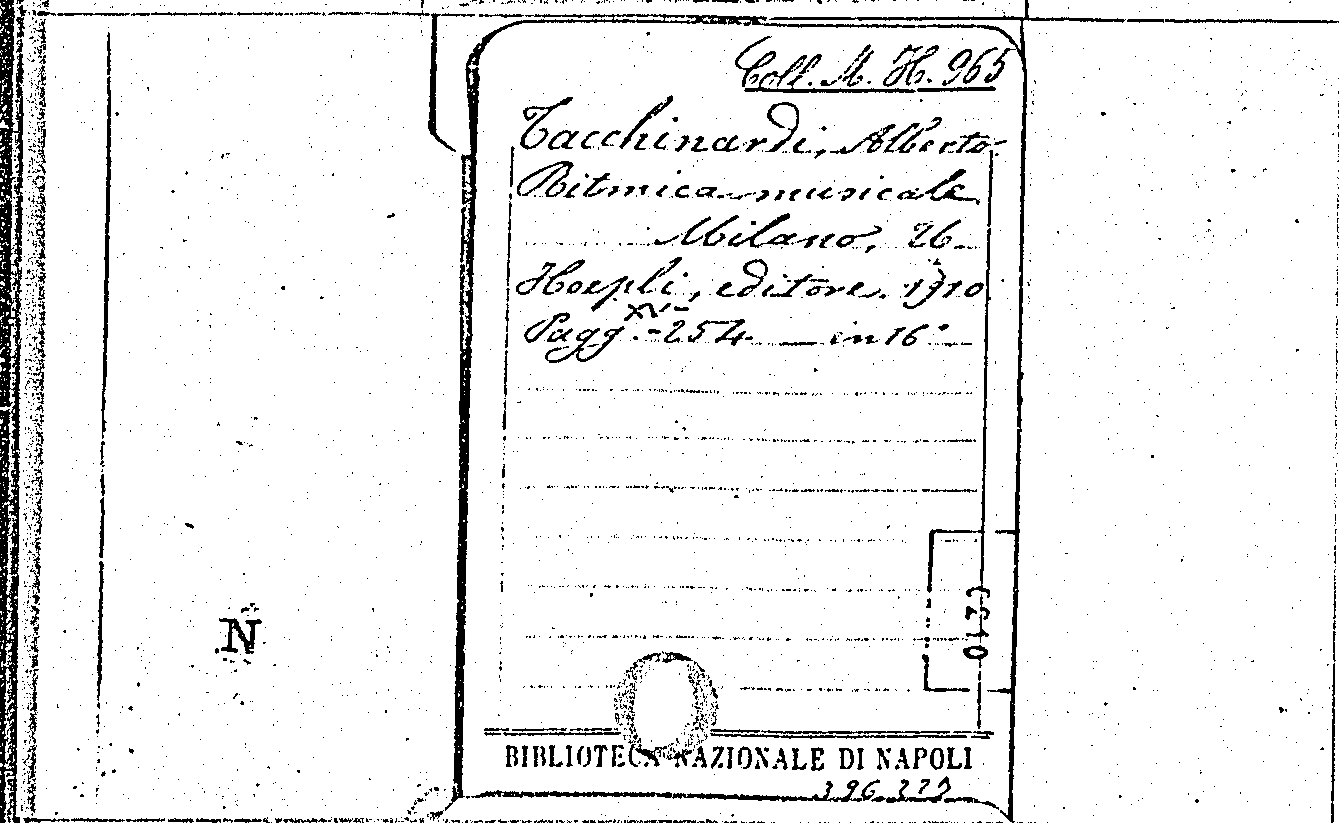 Coll. M. H. 965
Tacchinardi, Alberto.
Ritmica musicale
Milano,
Hoepli, editore. 1910
XV-
Pagg. -254 in 16°
N
BIBLIOTECA NAZIONALE DI NAPOLI